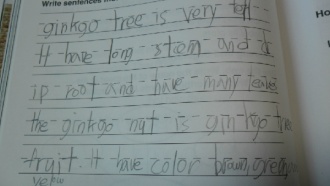 Write sentences
Ho
ginkgo tree is very tall
It have long stem and d
ip root and have many leave
the ginkgo nut is ginkgo tree
fruit. It have color brown, green,
yellow